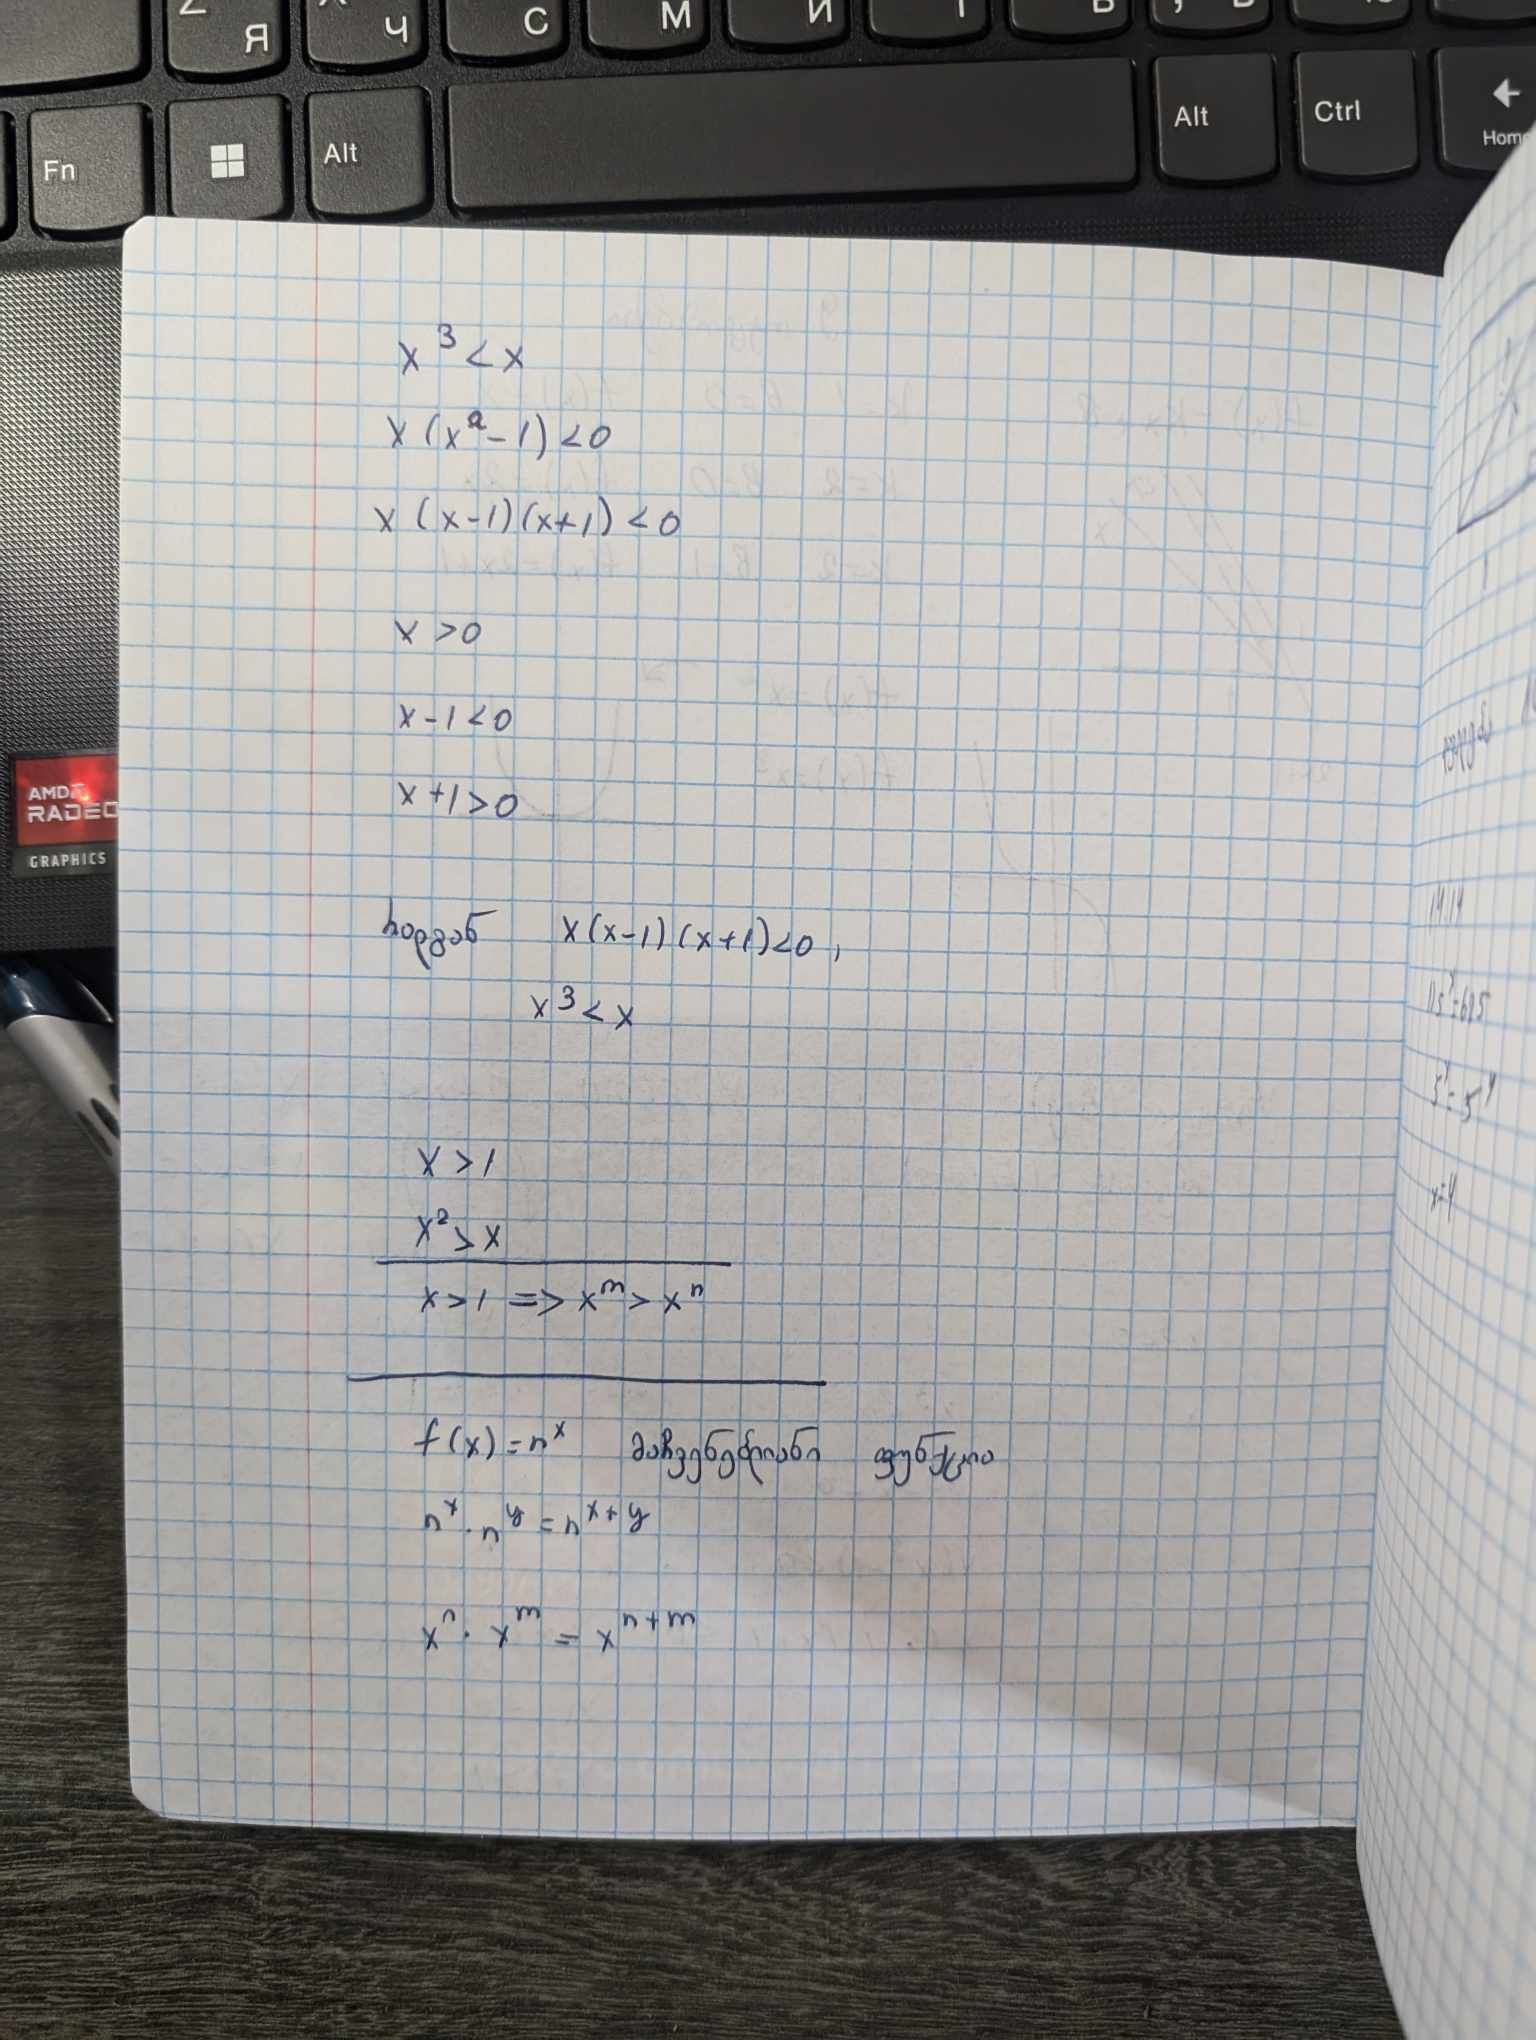 Я Ч С М И
Fn Alt Alt Ctrl Home
AMD
RADEO
GRAPHICS
x³ < x
x (x² - 1) < 0
x (x-1)(x+1) < 0
x > 0
x - 1 < 0
x + 1 > 0
რადგან x(x-1)(x+1)<0,
x³ < x
x > 1
x² > x
x > 1 => xᵐ > xⁿ
f(x) = nˣ მაჩვენებლიანი ფუნქცია
nˣ · nʸ = nˣ⁺ʸ
xⁿ · xᵐ = xⁿ⁺ᵐ